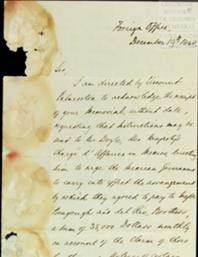 Foreign Office,
December 19th 184
Sir,
I am directed by Viscount
Palmerston to acknowledge the receipt
of your Memorial, without date,
requesting that Instructions may be
sent to Mr Doyle, Her Majesty's
Chargé d'Affaires in Mexico directing
him to urge the Mexican Government
to carry into effect the arrangement
by which they agreed to pay to
and del Rio, Brothers,
a sum of 35,000 Dollars monthly
on account of the Claim of those